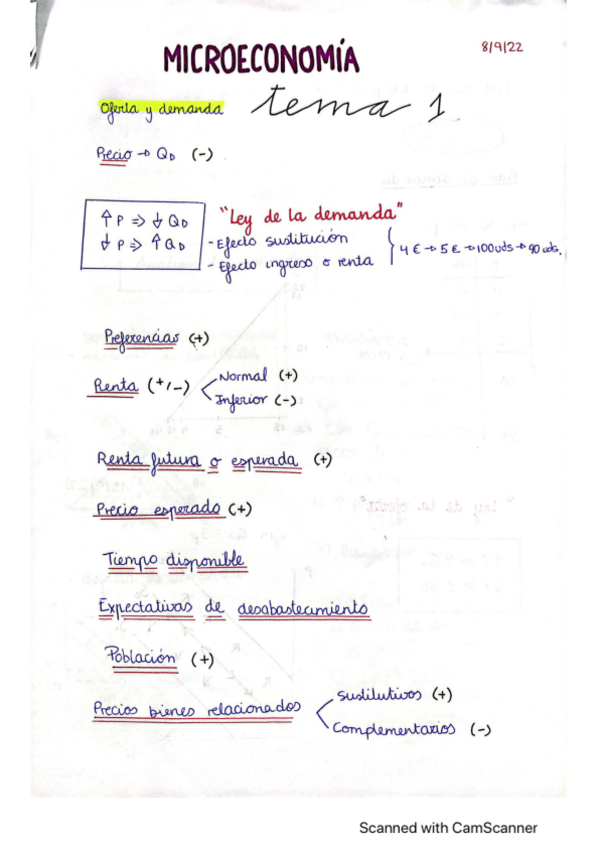 MICROECONOMÍA
8/9/22
Oferta y demanda
tema 1
Precio → QD (-)
↑ P ⇒ ↓ QD
↓ P ⇒ ↑ QD
"Ley de la demanda"
- Efecto sustitución
- Efecto ingreso o renta
4 € → 5 € → 100 uds → 90 uds.
Preferencias (+)
Renta (+/-)
Normal (+)
Inferior (-)
Renta futura o esperada (+)
Precio esperado (+)
Tiempo disponible
Expectativas de desabastecimiento
Población (+)
Precios bienes relacionados
Sustitutivos (+)
Complementarios (-)
Scanned with CamScanner